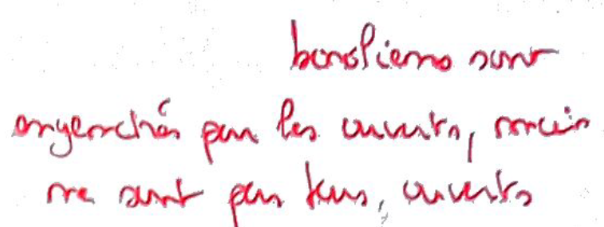 boréliens sont
engendrés par les ouverts, mais
ne sont pas tous, ouverts